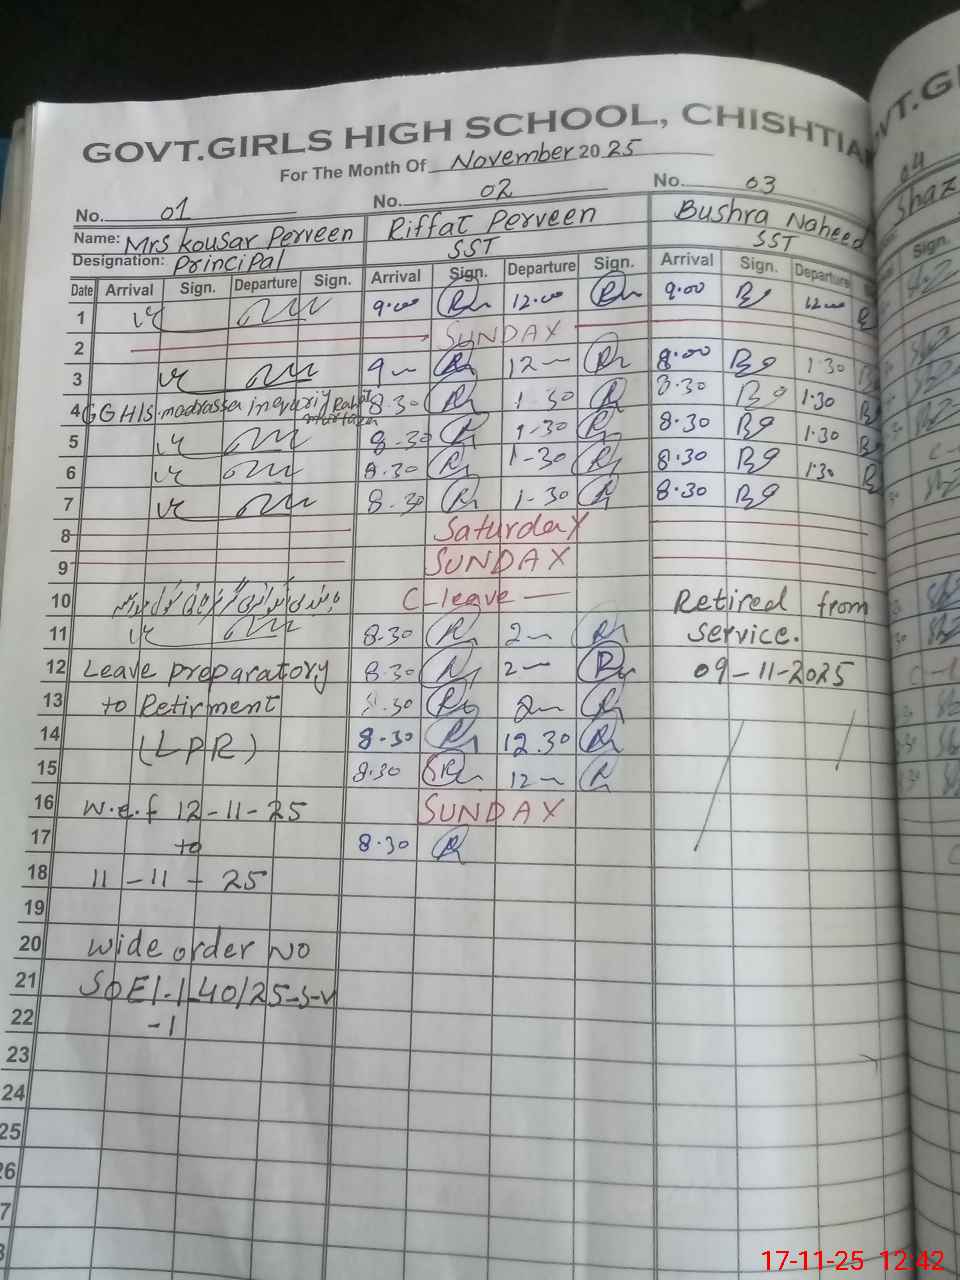 GOVT.GIRLS HIGH SCHOOL, CHISHTIA
For The Month Of November 2025
No. 01 No. 02 No. 03
Name: Mrs Kousar Perveen Riffat Perveen Bushra Naheed
Designation: Principal SST SST
Date Arrival Sign. Departure Sign. Arrival Sign. Departure Sign. Arrival Sign. Departure
1 9.00 12.00 9.00 12.00
2 SUNDAY
3 9 12 8.00 1.30
4 GGHS madrassa inquariy 8.30 1.30 8.30 1.30
5 8.30 1.30 8.30 1.30
6 8.30 1-30 8.30 1.30
7 8.30 1-30 8.30
8 Saturday
9 SUNDAY
10 C-leave Retired from
11 8.30 2 service.
12 Leave preparatory 8.30 2 09-11-2025
13 to Retirment 8.30 2
14 (LPR) 8-30 12.30
15 8.30 12
16 w.e.f 12-11-25 SUNDAY
17 to 8.30
18 11-11-25
19
20 wide order NO
21 SOE1.1-40/25-S-V
22 -1
23
24
25
26
7
04
Shaz
Sign.
17-11-25 12:42